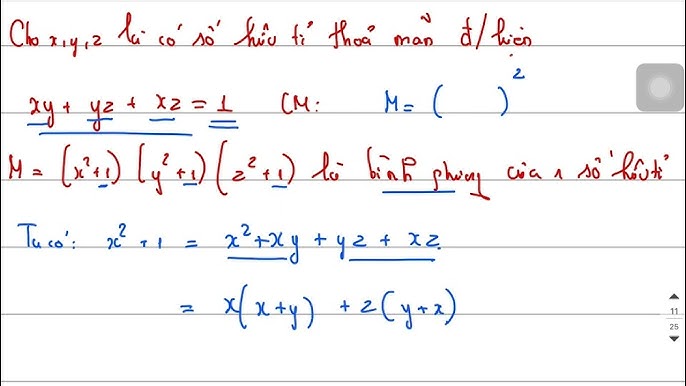 Cho x, y, z là có số hữu tỉ thoả mãn đ/kiện
xy + yz + xz = 1 CM: M = ( )²
M = (x²+1) (y²+1) (z²+1) là bình phương của 1 số hữu tỉ
Ta có: x² + 1 = x² + xy + yz + xz
= x(x+y) + z(y+x)
11
25